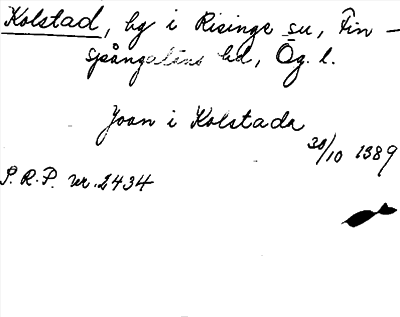 Kolstad, by i Risinge su, Fin-
spångaläns hd, Ög. l.
Joan i Kolstada
30/10 1389
S.R.P. nr. 2434